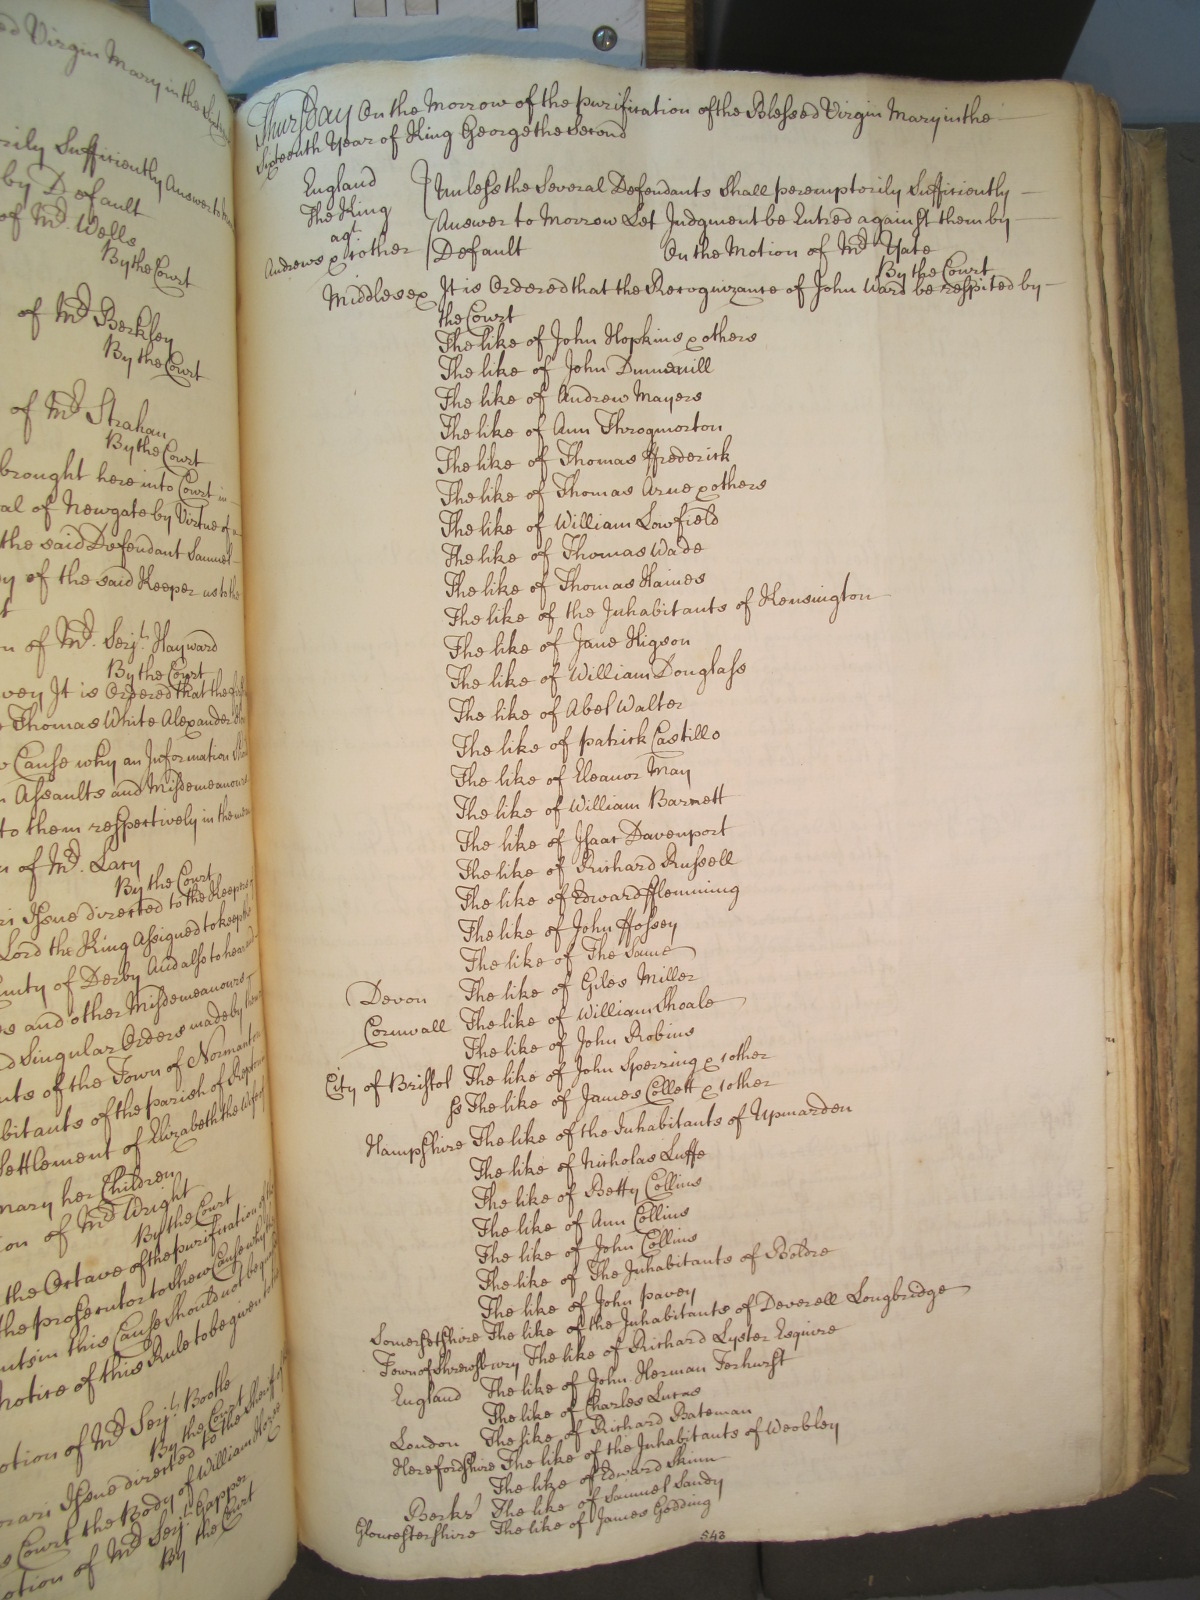 ed Virgin Mary in the
rily Sufficiently Answer to
by Default
of Mr. Wells
By the Court
of Mr. Berkley
By the Court
of Mr. Strahan
By the Court
brought here into Court in
al of Newgate by Virtue of a
the said Defendant Samuel
y of the said Keeper as to the
n of Mr. Serjt. Hayward
By the Court
vey It is Ordered that the
Thomas White Alexander
Cause why an Information
Assaults and Misdemeanours
to them respectively in the
n of Mr. Lacy
By the Court
ri Issue directed to the Keepers
Lord the King Assigned to keep the
unty of Derby And also to hear
es and other Misdemeanours
d Singular Orders made by
nts of the Town of Normanton
bitants of the parish of
Settlement of Elizabeth the Wife of
mary her Children
ion of Mr. Wright
By the Court
the Octave of the purification of the
the prosecutor to Shew Cause why
nts in this Cause should not be
notice of this Rule to be given to
otion of Mr. Serjt. Bootle
By the Court
orari Issue directed to the Sheriff
s Court the Body of William
otion of Mr. Serjt. Gapper
By the Court
Thursday On the Morrow of the purification of the Blessed Virgin Mary in the
Sixteenth Year of King George the Second
England Unless the Several Defendants Shall peremptorily Sufficiently
The King agt. Answer to Morrow Let Judgment be Entred against them by
Andrews & 1 other Default On the Motion of Mr. Yate
By the Court
Middlesex It is Ordered that the Recognizance of John Ward be respited by
the Court
The like of John Hopkins & others
The like of John
The like of Andrew Mayers
The like of Ann Throgmorton
The like of Thomas Ffrederick
The like of Thomas Arne & others
The like of William Lowfield
The like of Thomas Wade
The like of Thomas Haines
The like of the Inhabitants of Kensington
The like of Jane Higson
The like of William Douglass
The like of Abel Walter
The like of patrick Castillo
The like of Eleanor May
The like of William Barnett
The like of Isaac Davenport
The like of Richard Russell
The like of Edward Fflemming
The like of John Ffossey
The like of The Same
Devon The like of Giles Miller
Cornwall The like of William Shoale
The like of John Robins
City of Bristol The like of John Sperring & 1 other
ss The like of James Collett & 1 other
Hampshire The like of the Inhabitants of Upmarden
The like of Nicholas Luffe
The like of Betty Collins
The like of Ann Collins
The like of John Collins
The like of The Inhabitants of Boldre
The like of John pavey
Somersetshire The like of the Inhabitants of Deverell Longbridge
Town of Shrewsbury The like of Richard Lyster Esquire
England The like of John Herman
The like of Charles Lucas
London The like of Richard Bateman
Herefordshire The like of the Inhabitants of Weobley
The like of Edward Skinn
Berks The like of Samuel Sandy
Gloucestershire The like of James Godding
543